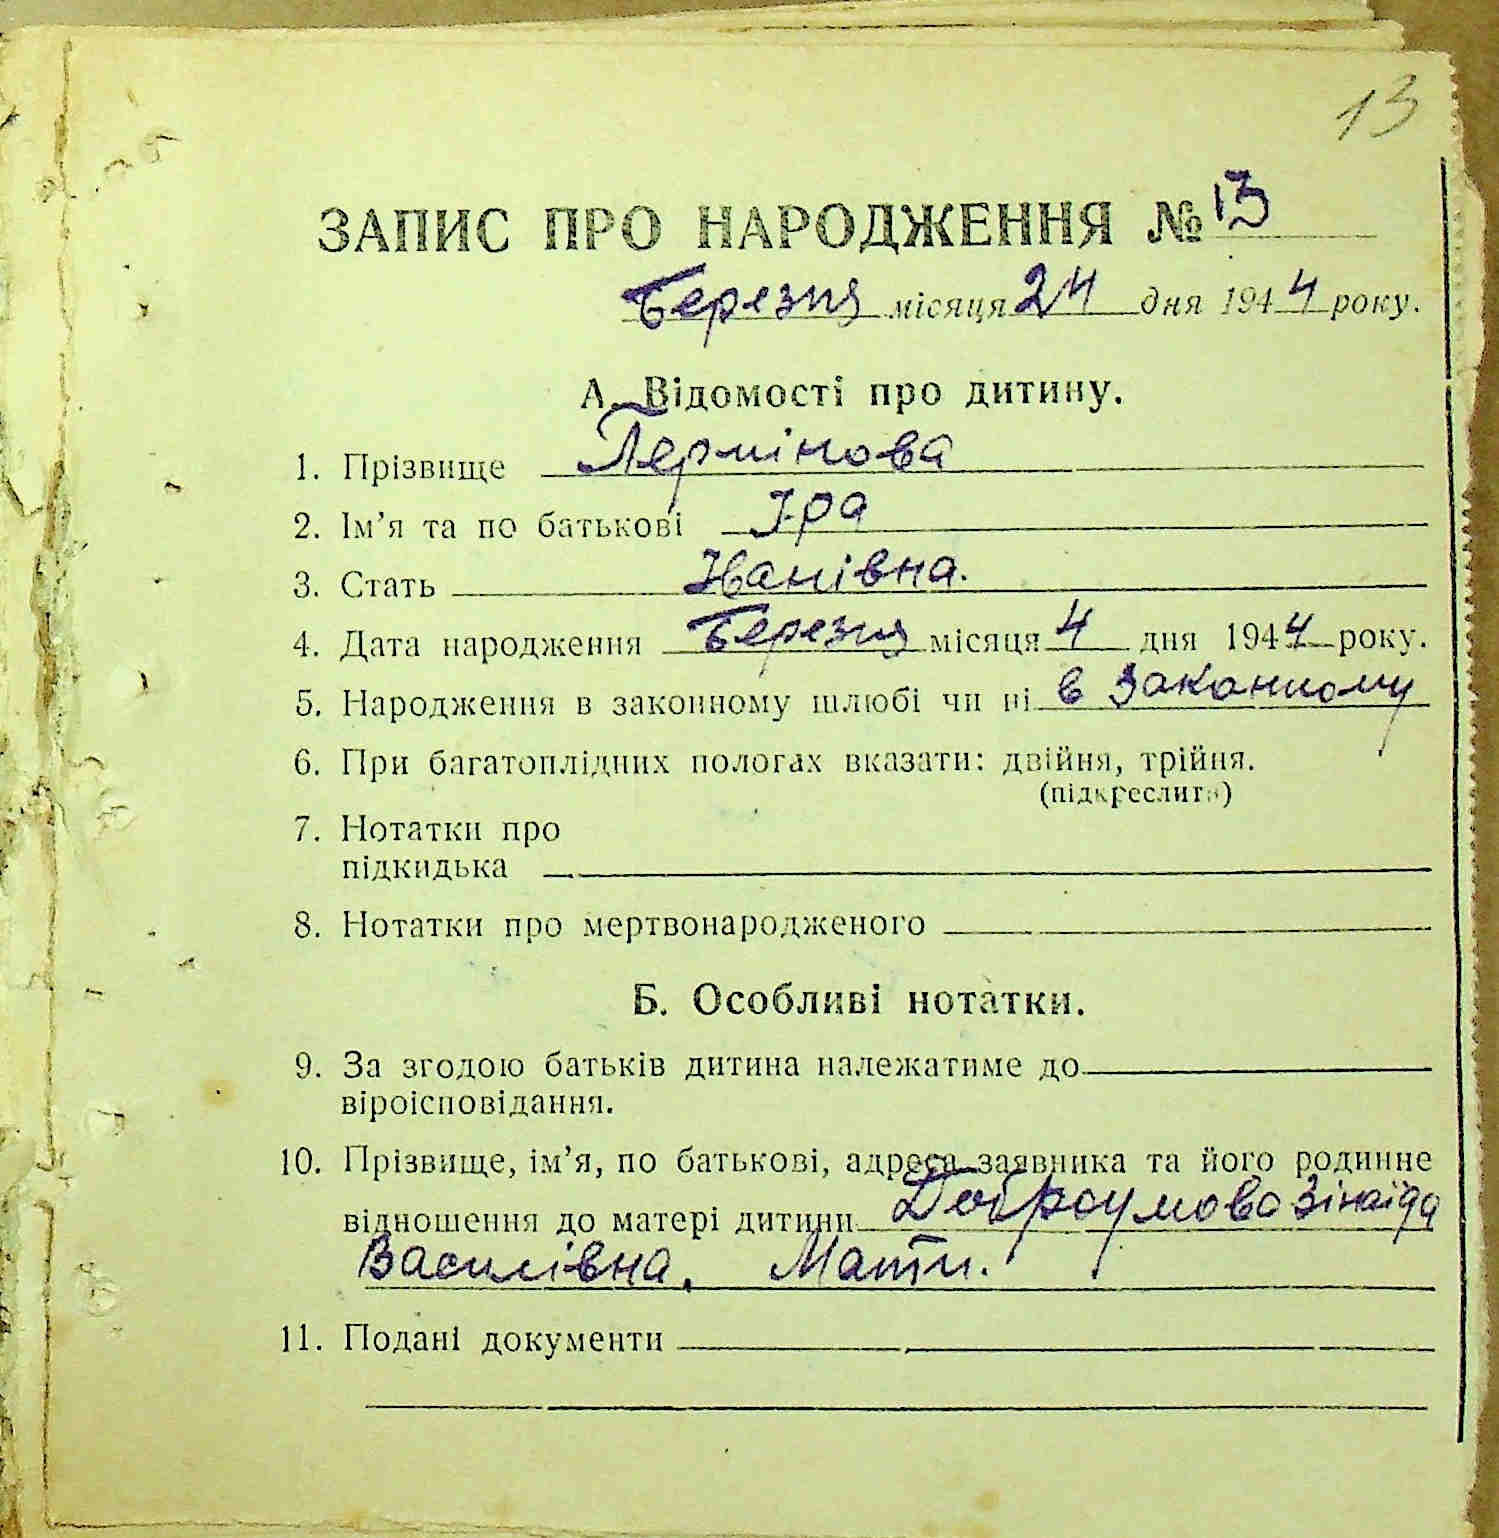 13
ЗАПИС ПРО НАРОДЖЕННЯ № 13
Березня місяця 24 дня 1944 року.
А. Відомості про дитину.
1. Прізвище Термінова
2. Ім’я та по батькові Іра
3. Стать Іванівна.
4. Дата народження Березня місяця 4 дня 1944 року.
5. Народження в законному шлюбі чи ні в Законному
6. При багатоплідних пологах вказати: двійня, трійня.
(підкреслити)
7. Нотатки про
підкидька
8. Нотатки про мертвонародженого
Б. Особливі нотатки.
9. За згодою батьків дитина належатиме до
віроісповідання.
10. Прізвище, ім’я, по батькові, адреса заявника та його родинне
відношення до матері дитини Доброумова Зінаїда
Василівна. Мати.
11. Подані документи